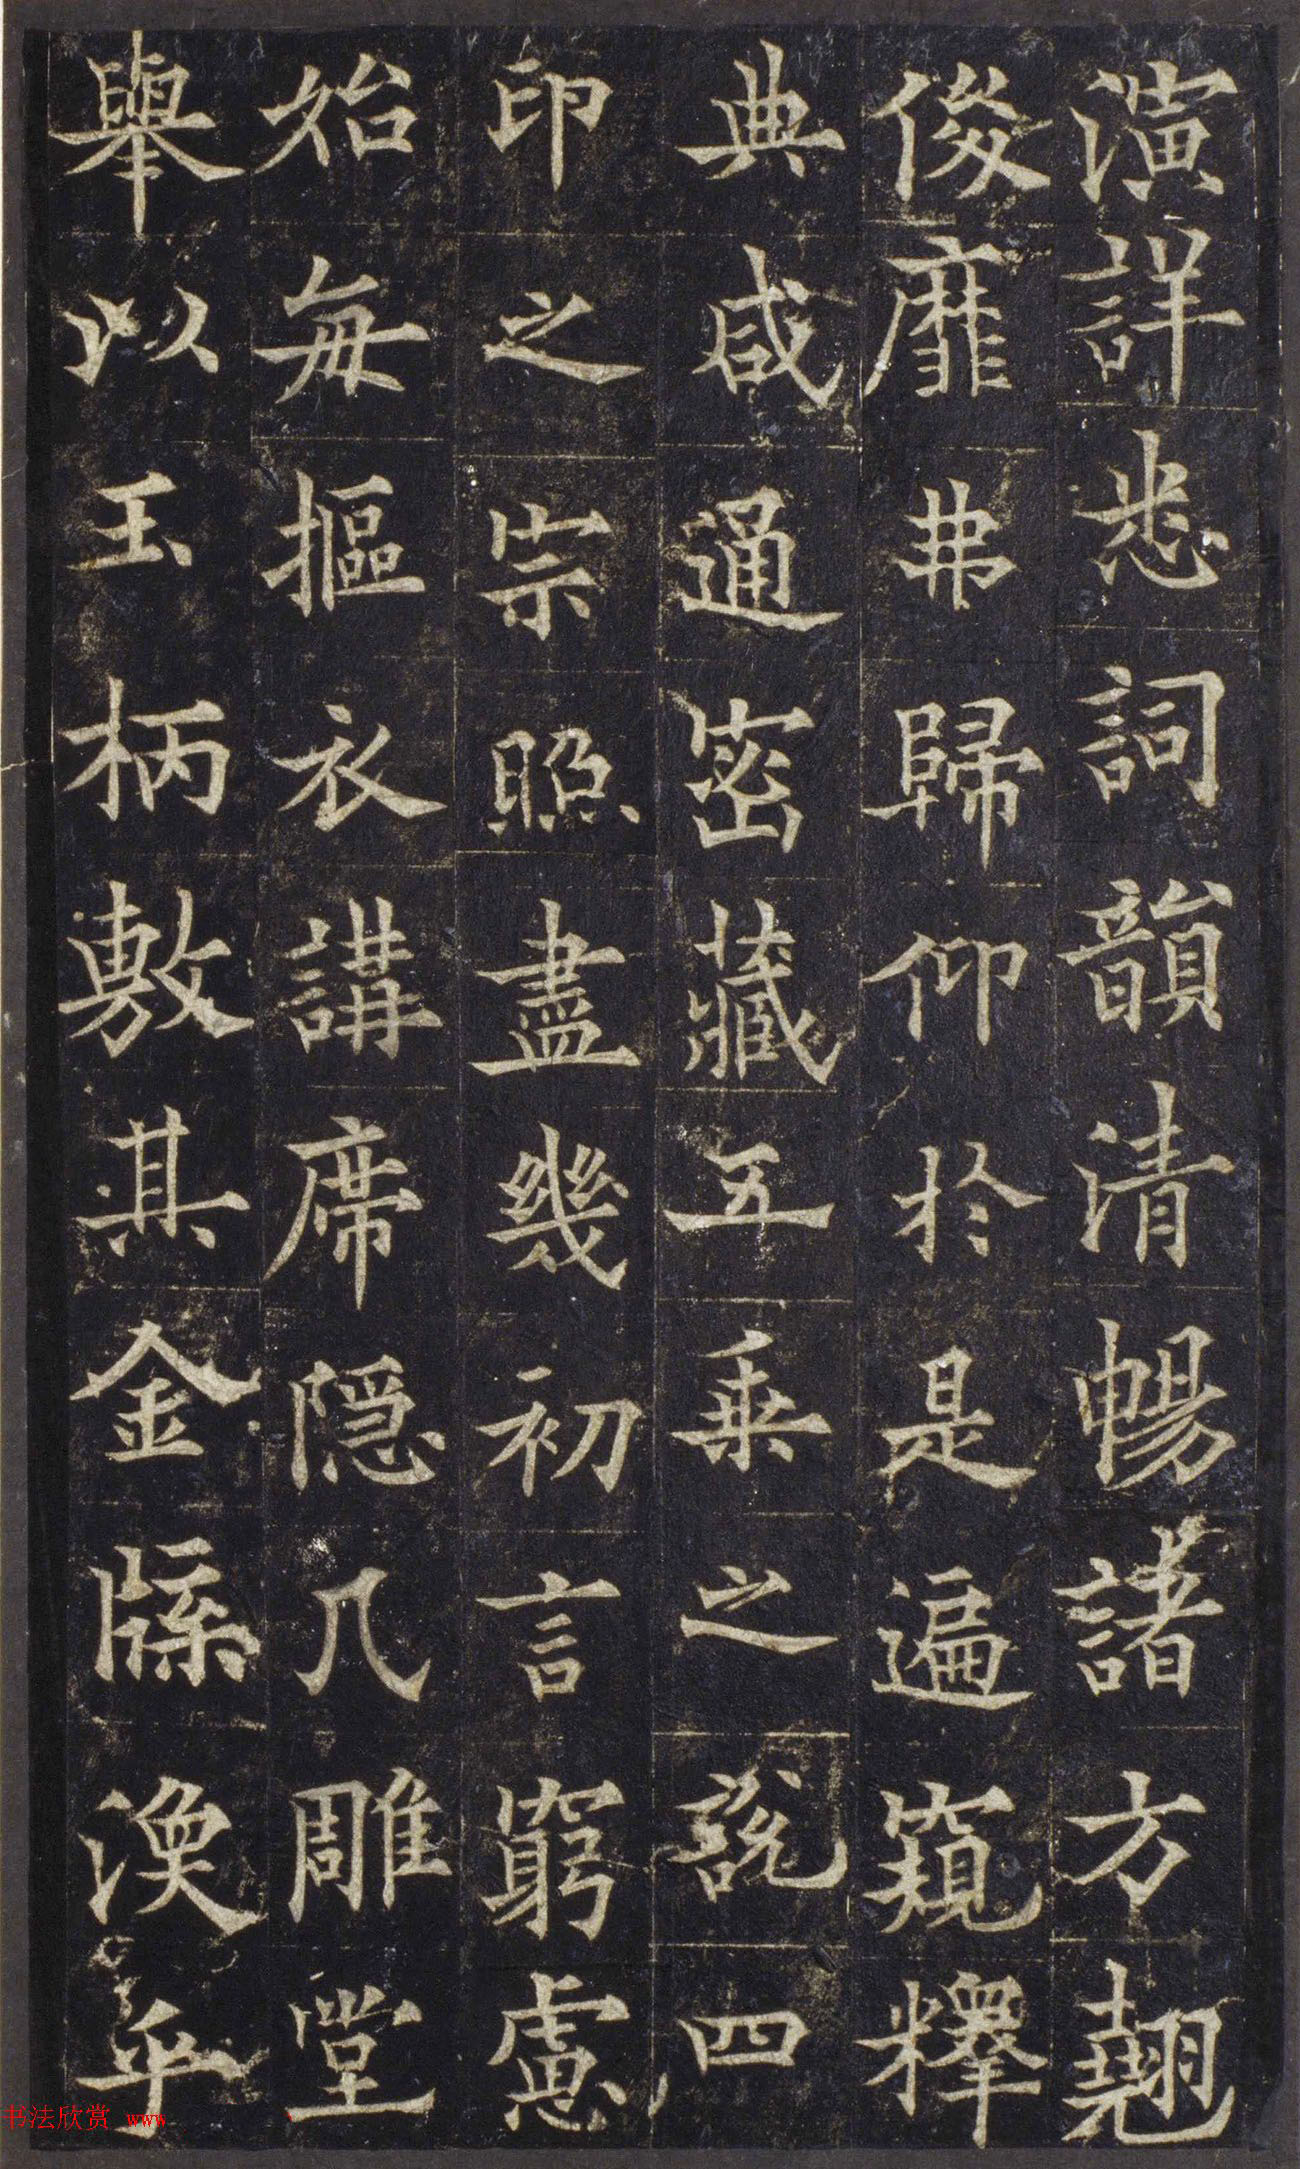 演詳悉詞韻清暢諸方翹
俊靡弗歸仰於是遍窺釋
典咸通密藏五乘之說四
印之宗照盡幾初言窮慮
始每摳衣講席隱几雕堂
舉以玉柄敷其金牒渙乎
书法欣赏 www